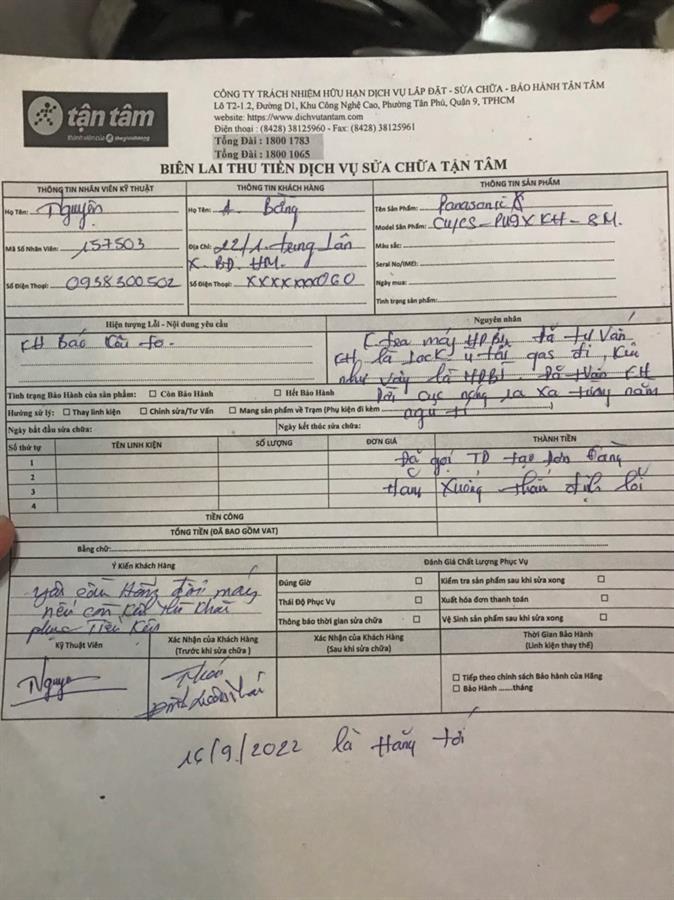 tận tâm
thành viên của thegioididong
CÔNG TY TRÁCH NHIỆM HỮU HẠN DỊCH VỤ LẮP ĐẶT - SỬA CHỮA - BẢO HÀNH TẬN TÂM
Lô T2-1.2, Đường D1, Khu Công Nghệ Cao, Phường Tân Phú, Quận 9, TPHCM
website: https://www.dichvutantam.com
Điện thoại : (8428) 38125960 - Fax: (8428) 38125961
Tổng Đài : 1800 1783
Tổng Đài : 1800 1065
BIÊN LAI THU TIỀN DỊCH VỤ SỬA CHỮA TẬN TÂM
THÔNG TIN NHÂN VIÊN KỸ THUẬT
Họ Tên: Nguyên
Mã Số Nhân Viên: 157503
Số Điện Thoại: 0938300502
THÔNG TIN KHÁCH HÀNG
Họ Tên: A. Bằng
Địa Chỉ: 22/1.
X. BĐ. HM.
Số Điện Thoại: XXXXXXX060
THÔNG TIN SẢN PHẨM
Tên Sản Phẩm: Panasonic
Model Sản Phẩm: CU/CS-PU9XKH-8M.
Màu sắc:
Seral No/IMEI:
Ngày mua:
Tình trạng sản phẩm:
Hiện tượng Lỗi - Nội dung yêu cầu
KH Báo Kêu to.
Nguyên nhân
máy HĐBt đã tư Vấn
KH là gas đi, Kêu
như vậy là HĐBT. KH
Dời cục nóng ra xa
ngủ
Tình trạng Bảo Hành của sản phẩm: ☐ Còn Bảo Hành ☐ Hết Bảo Hành
Hướng sử lý: ☐ Thay linh kiện ☐ Chỉnh sửa/Tư Vấn ☐ Mang sản phẩm về Trạm (Phụ kiện đi kèm
Ngày bắt đầu sửa chữa: Ngày kết thúc sửa chữa:
Số thứ tự TÊN LINH KIỆN SỐ LƯỢNG ĐƠN GIÁ THÀNH TIỀN
1
2
3
4
Đã gọi TD tạo đơn
Hãng Xuống thẩm định lỗi
TIỀN CÔNG
TỔNG TIỀN (ĐÃ BAO GỒM VAT)
Bằng chữ:
Ý Kiến Khách Hàng
yêu cầu Hãng đổi máy
nếu còn
Đánh Giá Chất Lượng Phục Vụ
Đúng Giờ ☐ Kiểm tra sản phẩm sau khi sửa xong ☐
Thái Độ Phục Vụ ☐ Xuất hóa đơn thanh toán ☐
Thông báo thời gian sửa chữa ☐ Vệ Sinh sản phẩm sau khi sửa xong ☐
Kỹ Thuật Viên
Nguyên
Xác Nhận của Khách Hàng
(Trước khi sửa chữa )
Xác Nhận của Khách Hàng
(Sau khi sửa chữa)
Thời Gian Bảo Hành
(Linh kiện thay thế)
☐ Tiếp theo chính sách Bảo hành của Hãng
☐ Bảo Hành ......tháng
16/9/2022 là Hãng tới